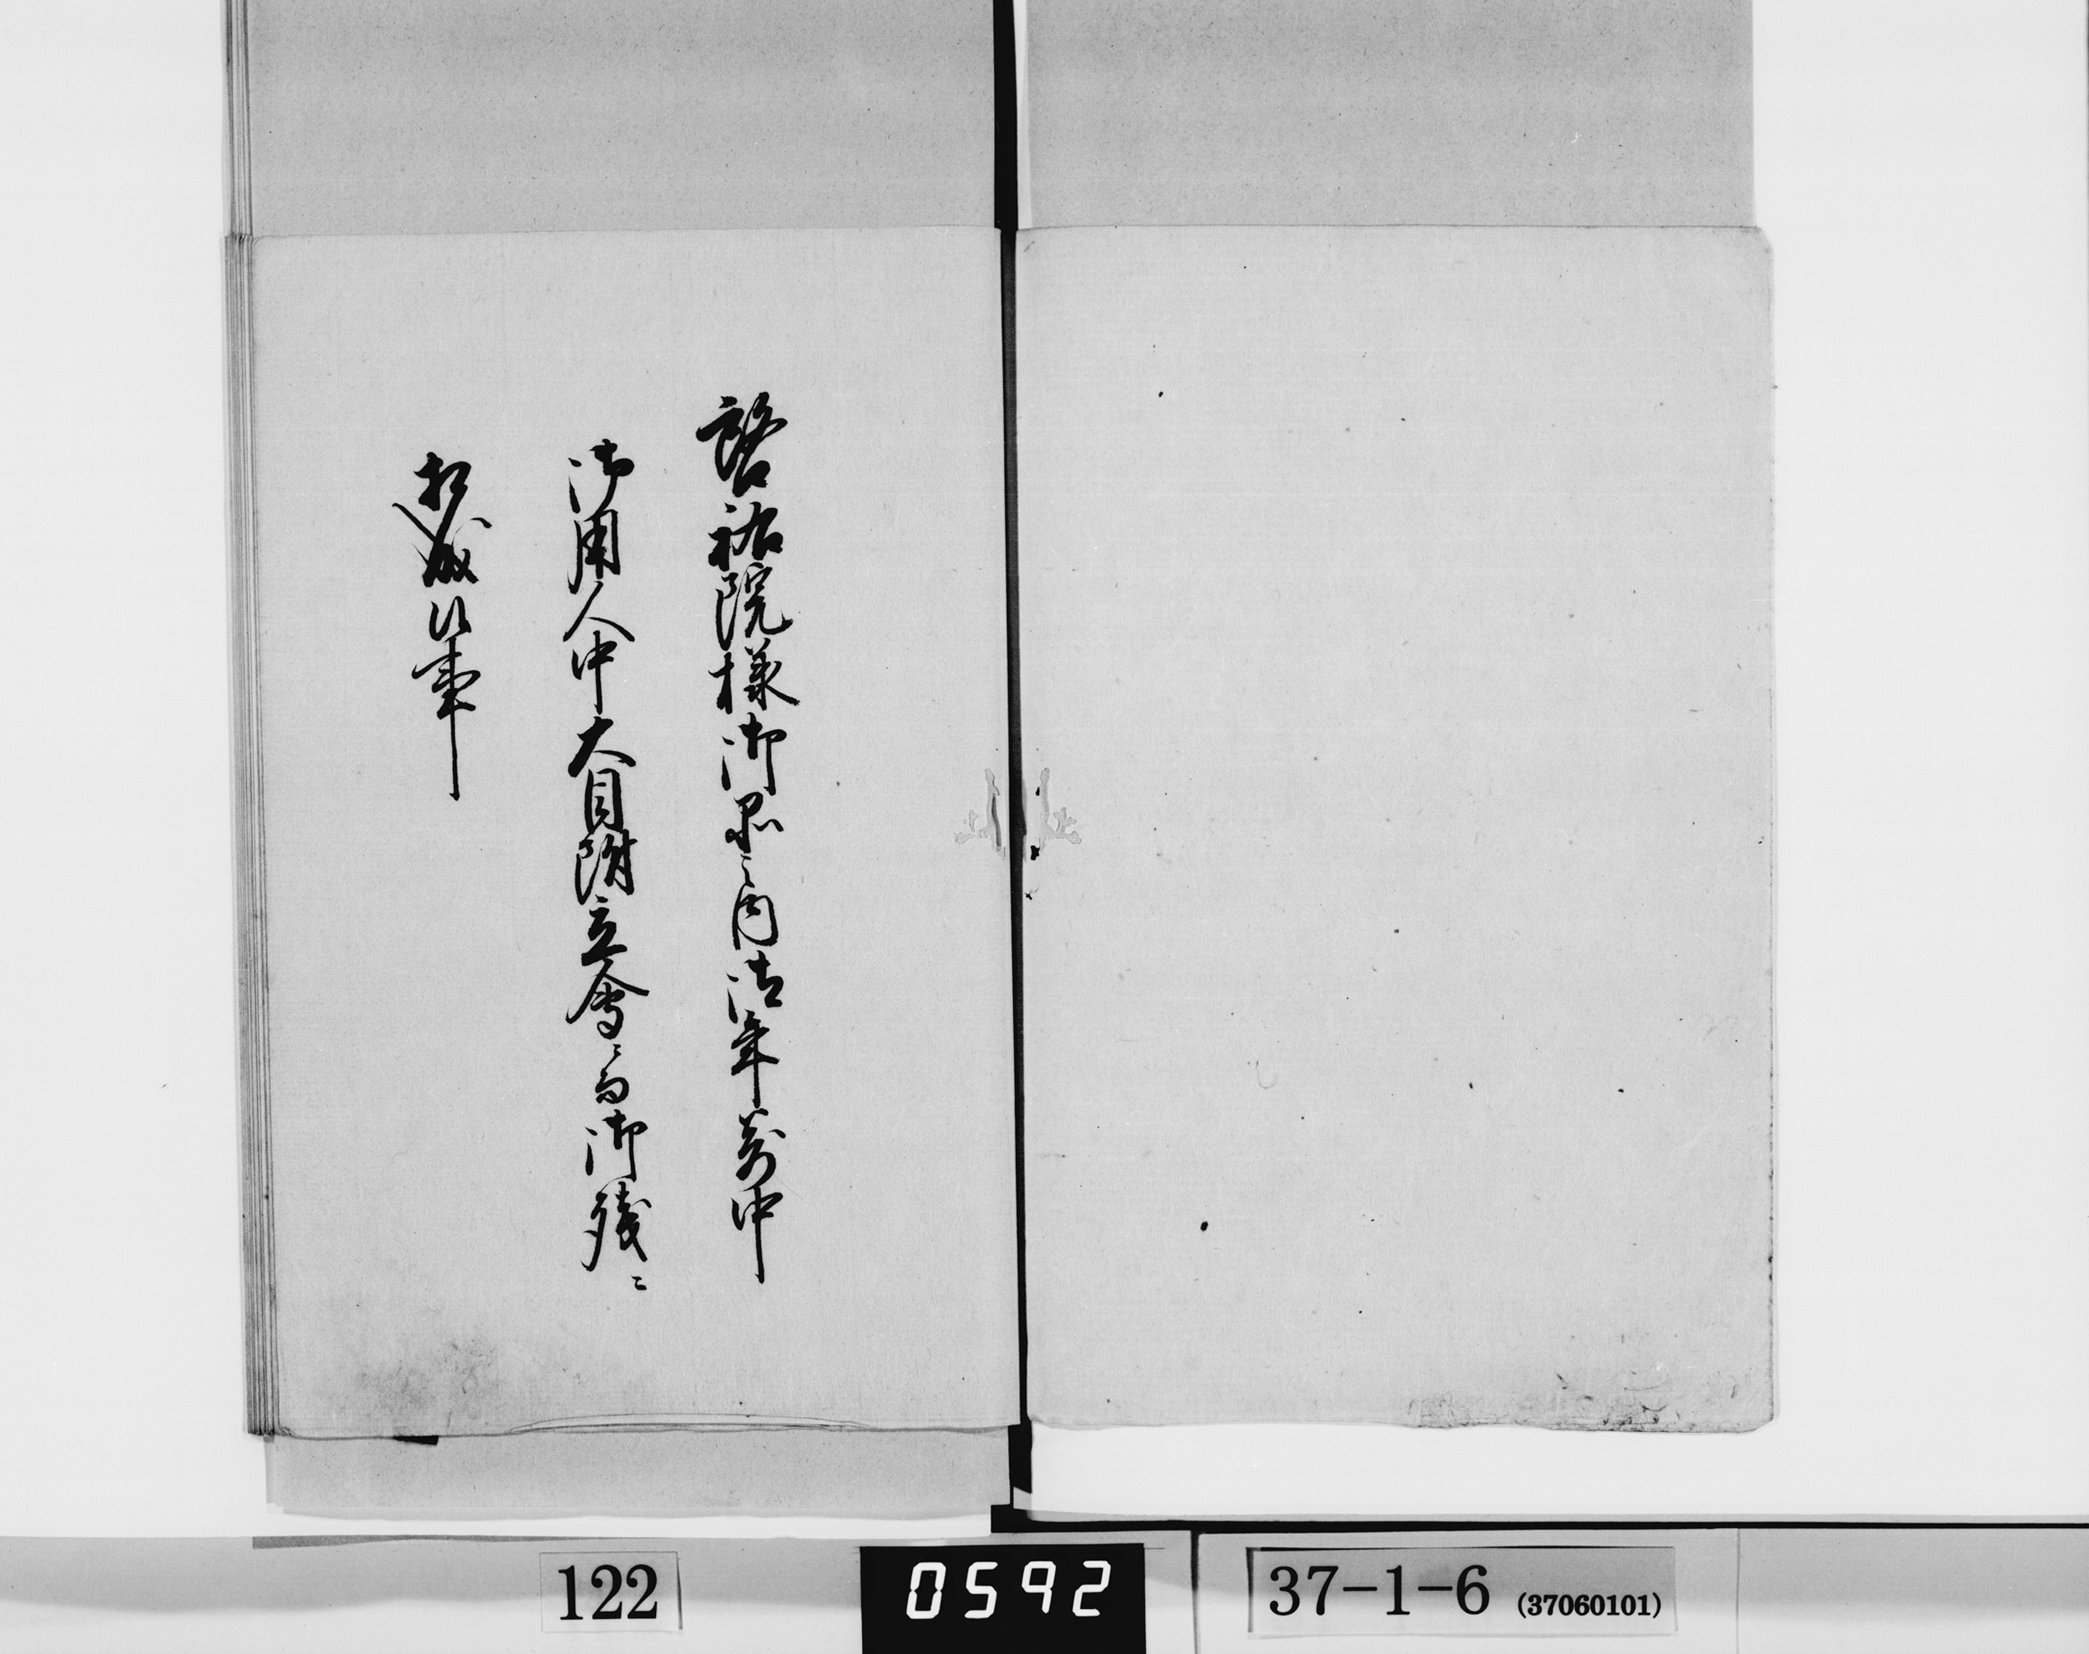 啓祐院様御忌之内御年寄中
御用人中大目附立会ニ而御残ニ
相成候事
122
0592
37-1-6 (37060101)